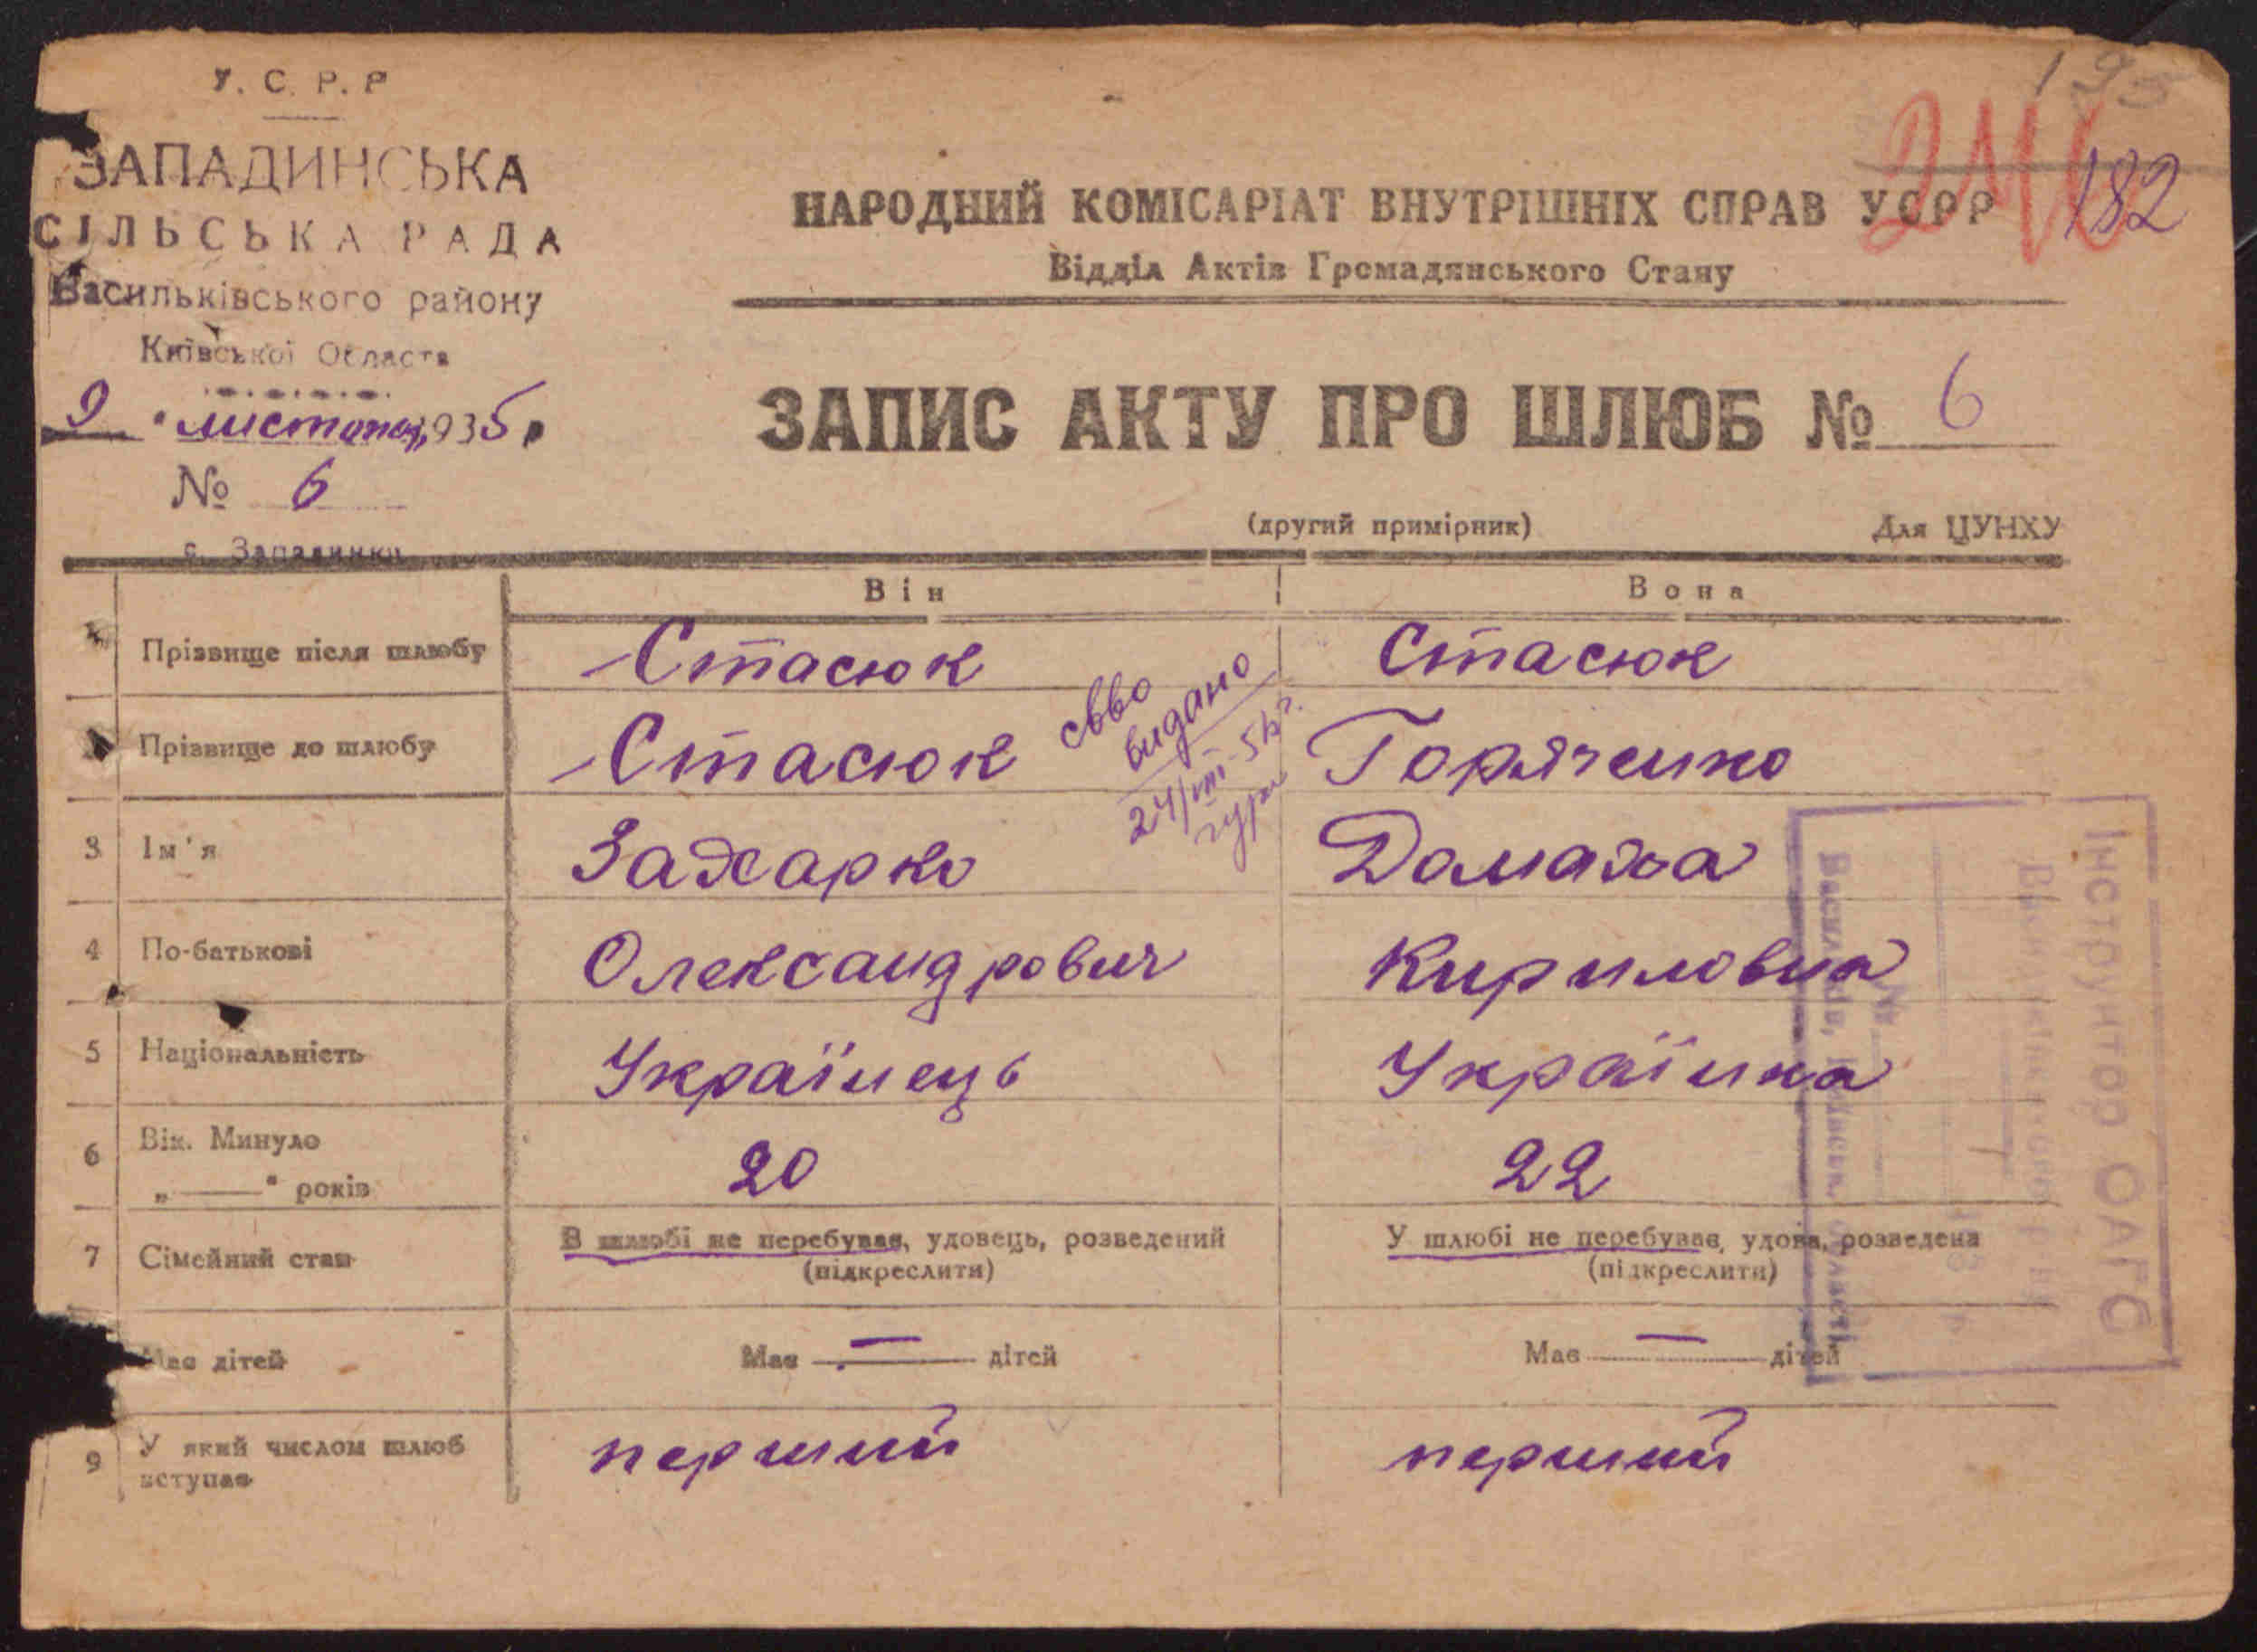 У. С. Р. Р
ЗАПАДИНСЬКА
СІЛЬСЬКА РАДА
Васильківського району
Київської Области
9 " листопад 1935 р
№ 6
с. Западинка
195
246
182
НАРОДНИЙ КОМІСАРІАТ ВНУТРІШНІХ СПРАВ УСРР
Відділ Актів Громадянського Стану
ЗАПИС АКТУ ПРО ШЛЮБ № 6
(другий примірник) Для ЦУНХУ
Він Вона
Прізвище після шлюбу Стасюк Стасюк
Прізвище до шлюбу Стасюк Горяченко
свво
видано
24/VIII-
3 Ім'я Захарко Домаха
4 По-батькові Олександрович Кириловна
5 Національність Українець Українка
6 Вік. Минуло 20 22
„ —— " років
7 Сімейний стан В шлюбі не перебував, удовець, розведений У шлюбі не перебував, удова, розведена
(підкреслити) (підкреслити)
Має дітей Має — дітей Має — дітей
9 У який числом шлюб перший перший
вступає
Інструнтор ОАГС
№